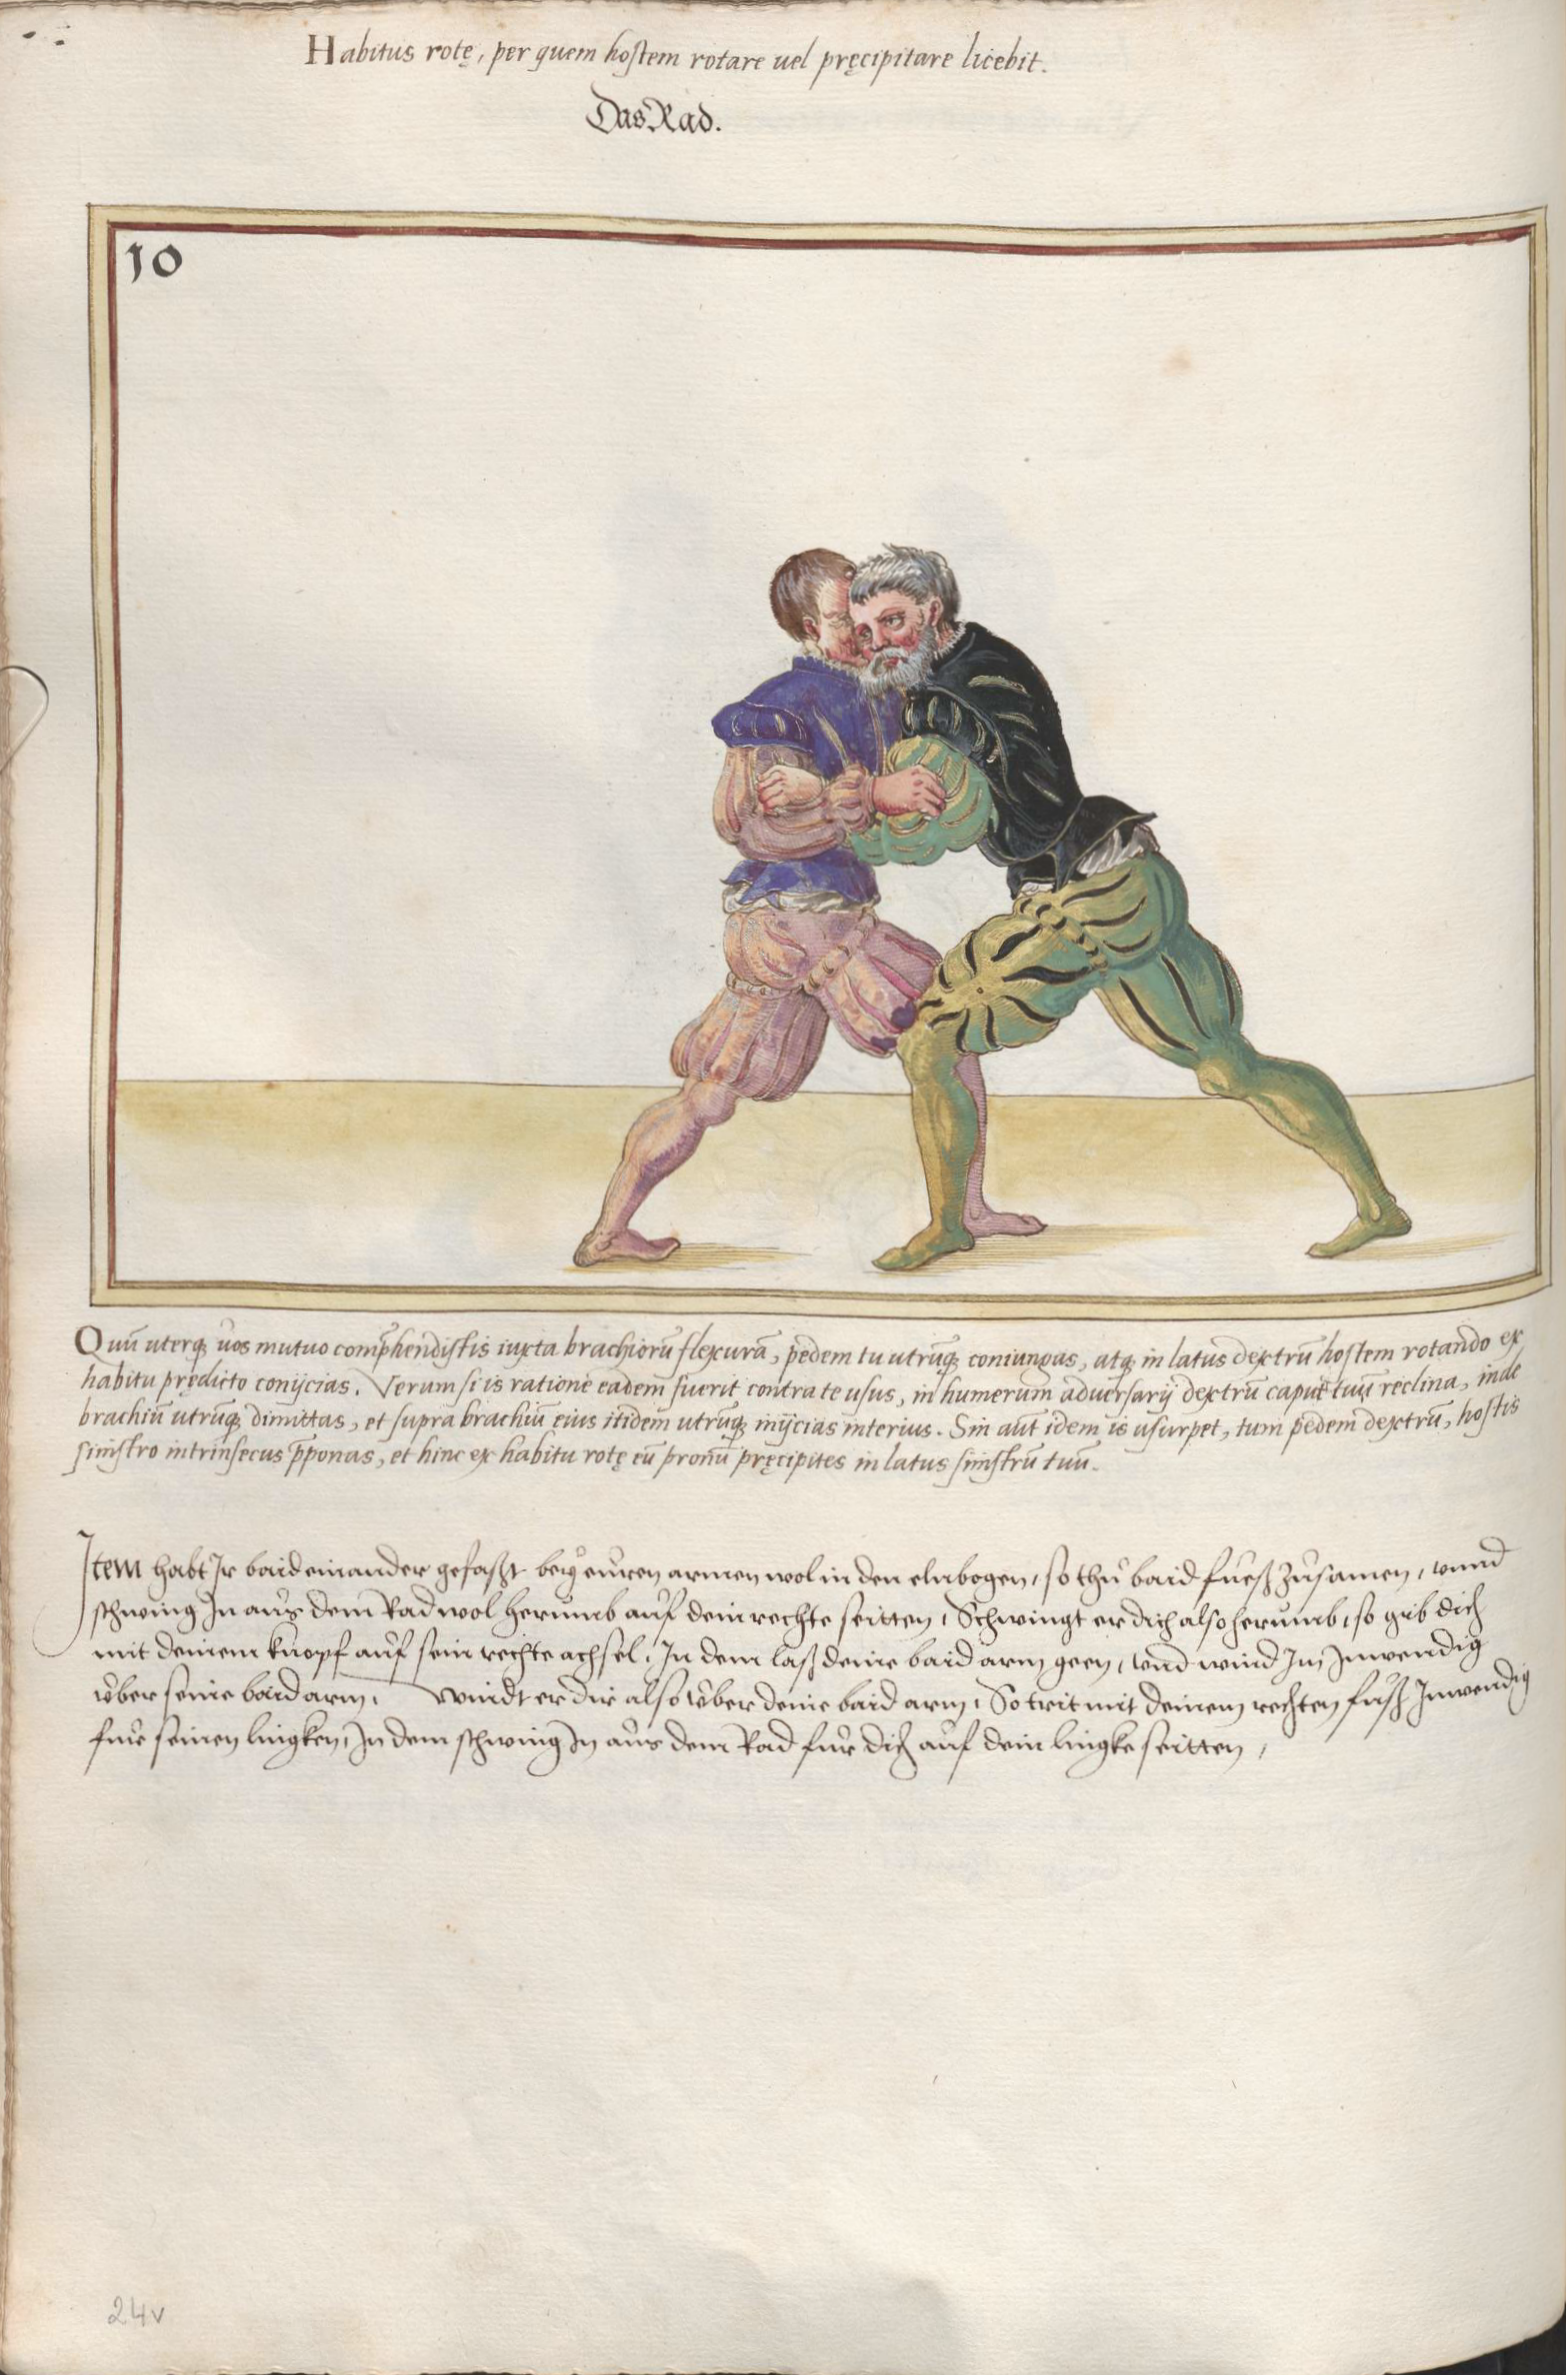 Habitus rotę, per quem hostem rotare uel pręcipitare licebit.
Das Rad.
10
Quū uterq; uos mutuo comp̄hendistis iuxta brachiorū flexurā, pedem tu utrūq; coniungas, atq; in latus dextrū hostem rotando ex
habitu prędicto conijcias. Verum si is ratione eadem fuerit contra te usus, in humerum aduersarij dextrū caput tuū reclina, inde
brachiū utrūq; dimittas, et supra brachiū eius itidem utrūq; inijcias interius. Sin aūt idem is usurpet, tum pedem dextrū, hostis
sinistro intrinsecus p̄ponas, et hinc ex habitu rotę eū pronū pręcipites in latus sinistrū tuū.
Item habt Ir baid einander gefaßt bey euren armen wol in den elnbogen, so thu baid fueß zusamen, vnnd
schwing In aus dem Rad wol herumb auf dein rechte seitten, Schwingt er dich also herumb, so gib dich
mit deinem knopf auf sein rechte achsel, In dem laß deine baid arm geen, vnd wind Im Inwendig
vber seine baid arm, Windt er dir also vber deine baid arm, So trit mit deinem rechten fuß Inwendig
fur seinen lingken, In dem schwing In aus dem Rad fur dich auf dein lingke seitten,
24v